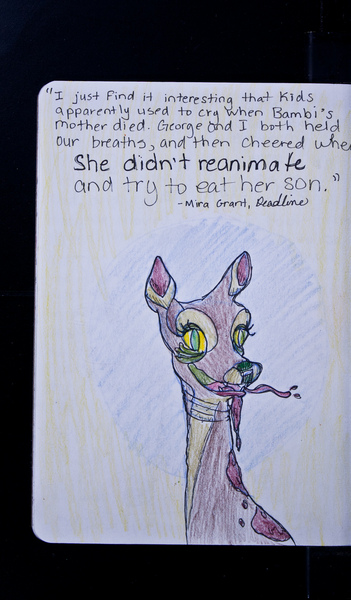 "I just find it interesting that kids
apparently used to cry when Bambi's
mother died. George and I both held
our breaths, and then cheered when
She didn't reanimate
and try to eat her son."
-Mira Grant, Deadline